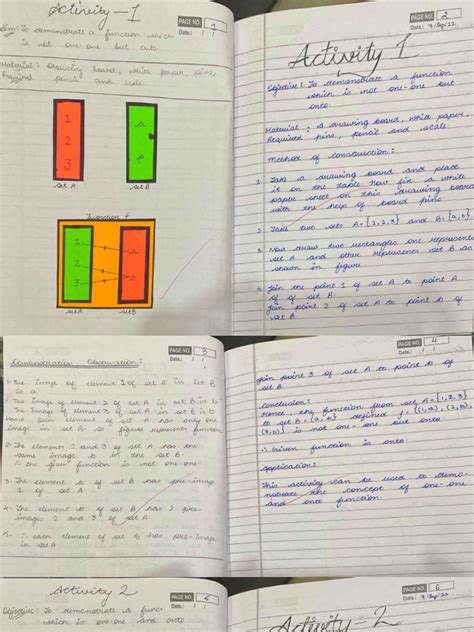 Activity-1
PAGE NO. 1
Date:
Aim: To demonstrate a function which
is not one-one but onto.
Material: Drawing board, white paper, pins,
Required pencil and scale
1
2
3
a
set A
set B
function f
1
2
3
a
b
set A
set B
PAGE NO. 2
Date: 7/Sep/22
Activity 1
Objective: To demonstrate a function
which is not one-one but
onto.
Material: A drawing board, white paper,
Required pins, pencil and scale.
Method of construction:
1. Take a drawing board and place
it on the table now fix a white
paper sheet on this drawing board
with the help of board pins.
2. Take two sets A = {1,2,3} and B = {a,b}
3. Now draw two rectangles one represents
set A and other represents set B as
shown in figure.
4. Join the point 1 of set A to point A
of of set B.
Join point 2 of set A to point b of
set B
PAGE NO. 3
Date:
Demonstration Observation:
1. The image of element 1 of set A in set B
is a
The image of element 2 of set A in set B is b
The image of element 3 of set A in set B is b
Hence each element of set A has only one
image in set B. So figure represents function
2. The elements 2 and 3 of set A has the
same image b in the set B.
∴ the given function is not one-one
3. The element a of set B has pre-image
1 of set A
4. The element b of set B has 2 pre-
images 2 and 3 of set A
5. ∴ each element of set B has pre-image
in set A
PAGE NO. 4
Date:
Join point 3 of set A to point b of
set B
Conclusion:
Hence, the function from set A = {1,2,3}
to set B = {a,b} defined f = {(1,a), (2,b),
(3,b)} is not one-one but onto.
∴ Given function is onto
Application:
This activity can be used to demo-
nstrate the concept of one-one
and onto function.
Activity 2
PAGE NO. 5
Date:
Objective: To demonstrate a func-
which is one-one and onto
PAGE NO. 6
Date: 7/Sep/22
Activity-2